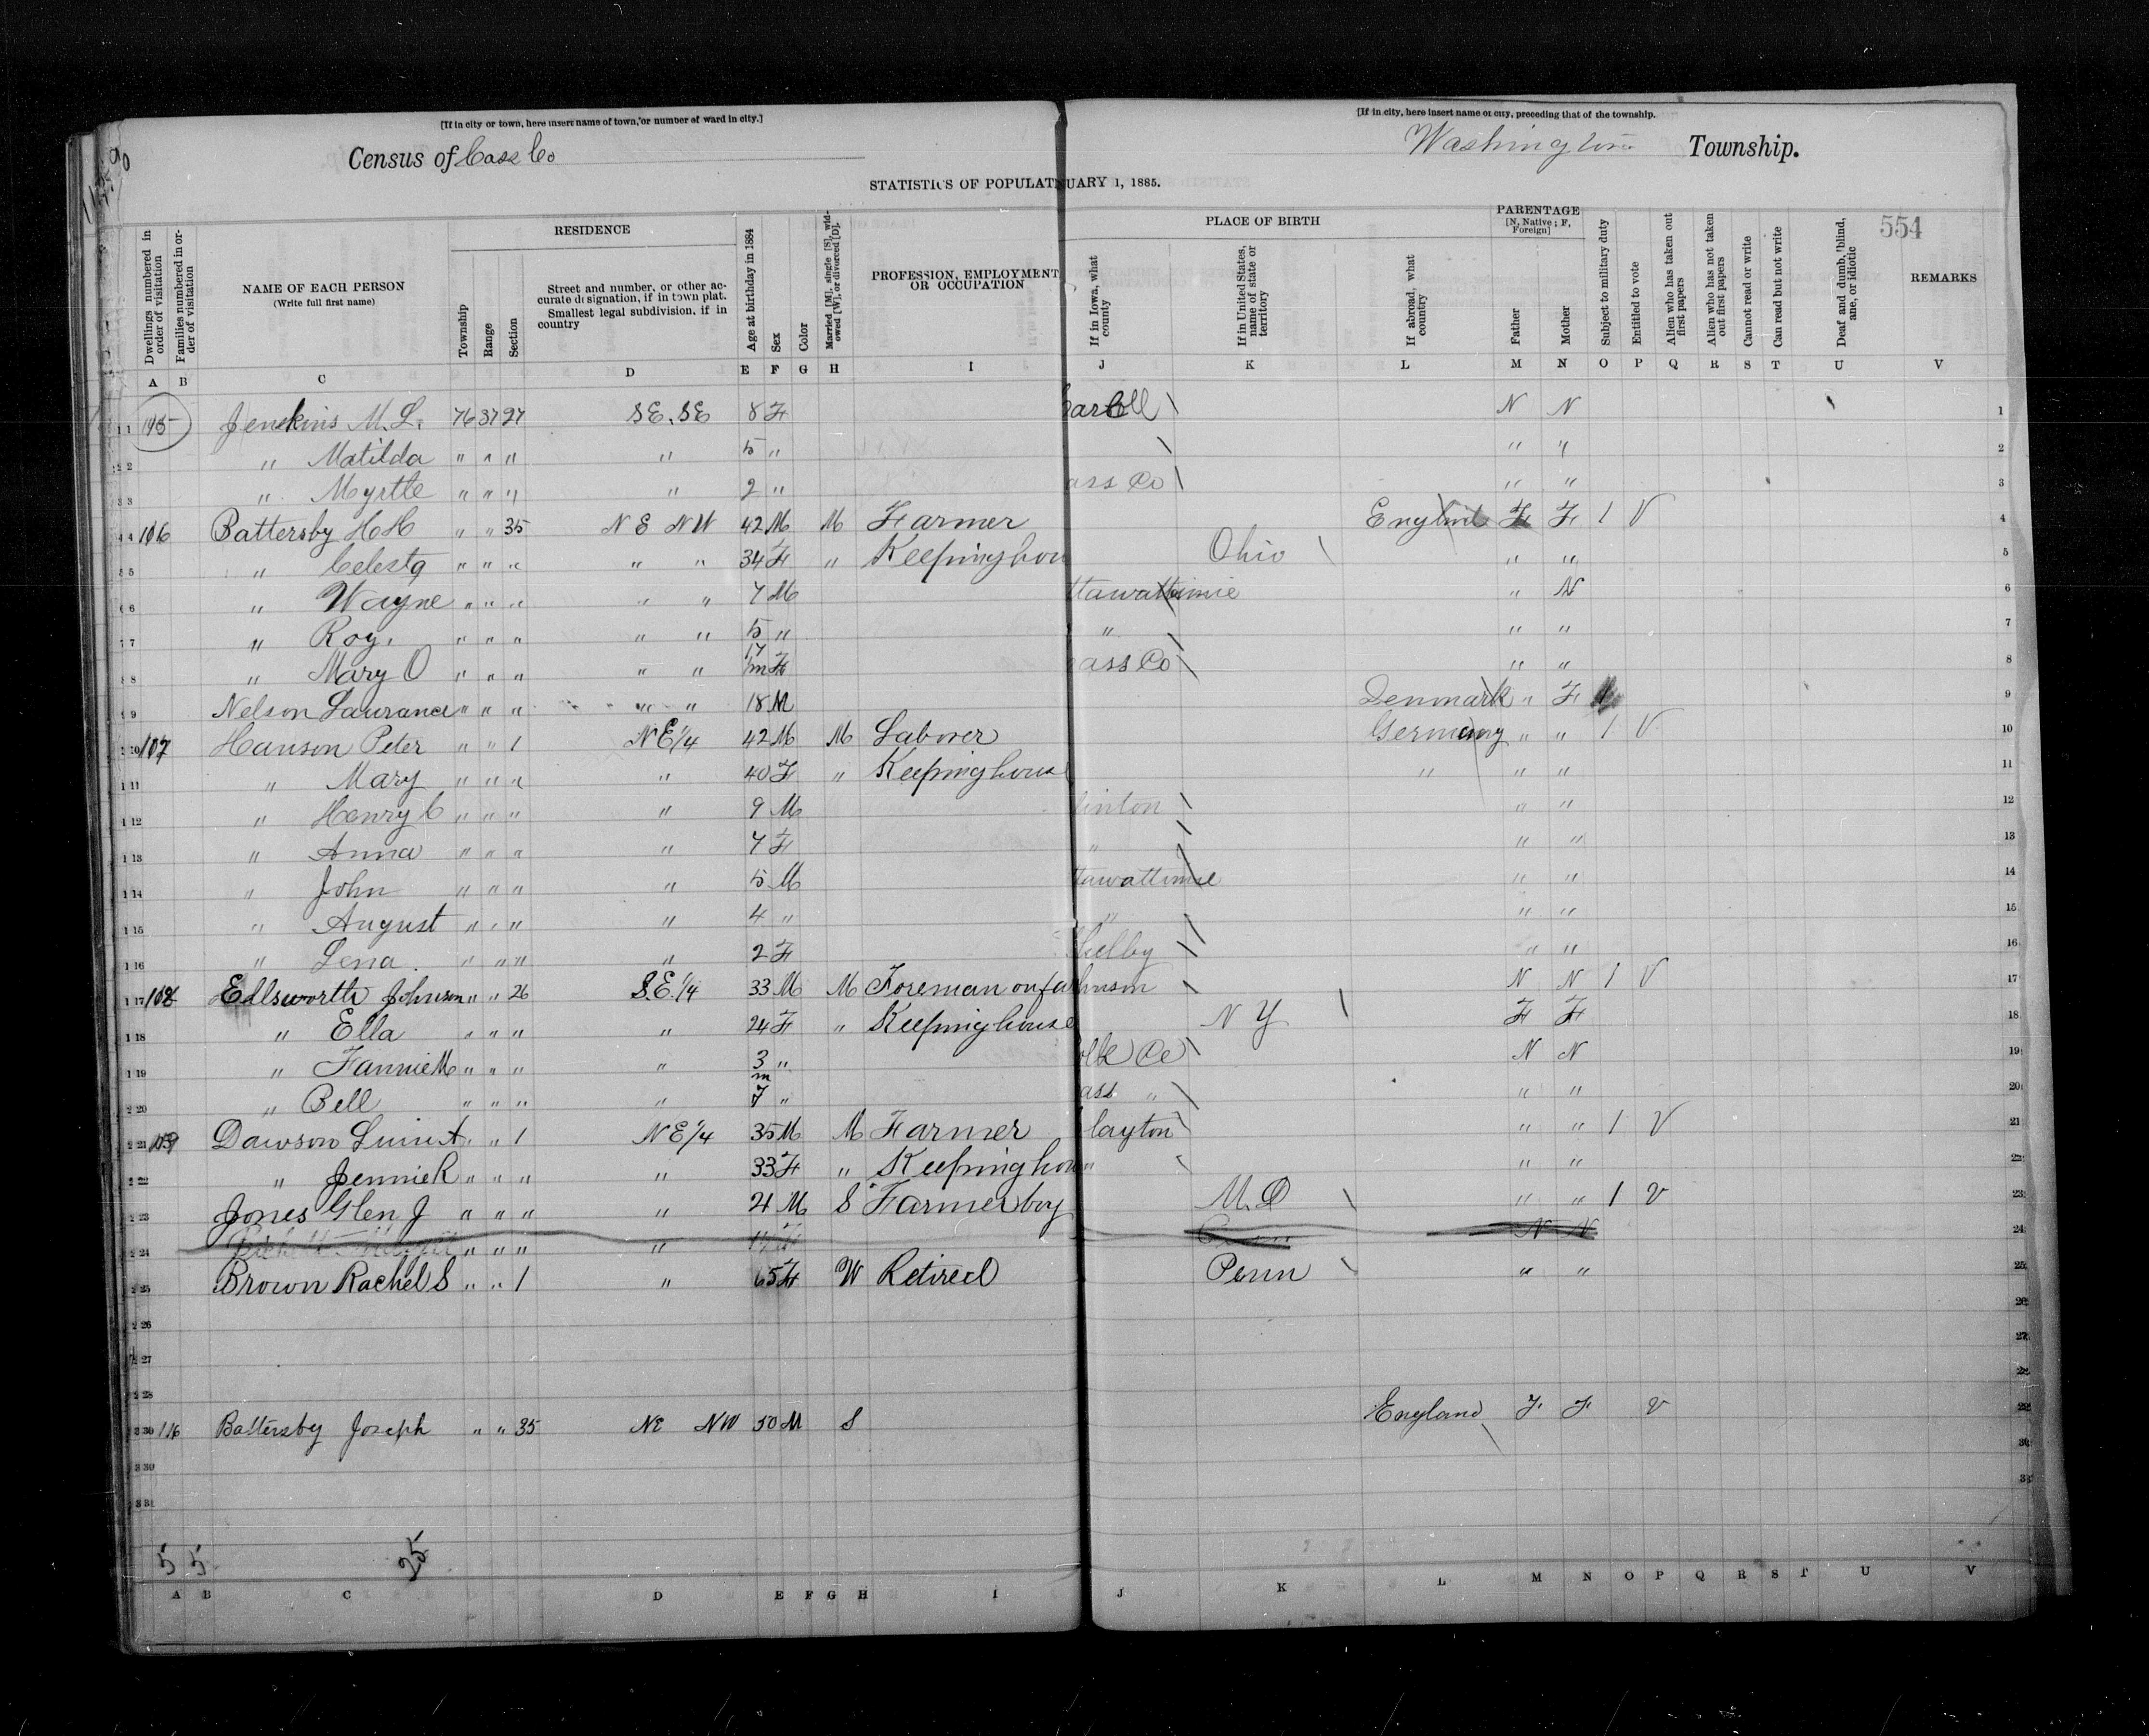 [If in city or town, here insert name of town, or number of ward in city.] [If in city, here insert name of city, preceding that of the township.
Census of Cass Co Washington Township.
STATISTICS OF POPULAT NUARY 1, 1885.
554
Dwellings numbered in order of visitation
Families numbered in order of visitation
NAME OF EACH PERSON
(Write full first name)
RESIDENCE
Township
Range
Section
Street and number, or other accurate designation, if in town plat. Smallest legal subdivision, if in country
Age at birthday in 1884
Sex
Color
Married [M], single [S], widowed [W], or divorced [D].
PROFESSION, EMPLOYMENT OR OCCUPATION
PLACE OF BIRTH
If in Iowa, what county
If in United States, name of state or territory
If abroad, what country
PARENTAGE
[N, Native; F, Foreign]
Father
Mother
Subject to military duty
Entitled to vote
Alien who has taken out first papers
Alien who has not taken out first papers
Cannot read or write
Can read but not write
Deaf and dumb, blind, ane, or idiotic
REMARKS
A B C D E F G H I J K L M N O P Q R S T U V
1 105 Jenskins M. L. 76 37 27 SE. SE 8 F N N 1
2 " Matilda " " " " 5 " " " 2
3 " Myrtle " " " " 2 " ass Co " " 3
4 106 Battersby H H " " 35 N E N W 42 M M Farmer England F F 1 V 4
5 " Celesta " " " " " 34 F " Keeping hou Ohio " " 5
6 " Wayne " " " " " 7 M ttawattamie " N 6
7 " Roy. " " " " " 5 " " " " 7
8 " Mary O " " " " " F ass Co " " 8
9 Nelson Laurance " " " " " 18 M Denmark " F 9
10 107 Hanson Peter " " 1 N E 1/4 42 M M Laborer Germany " " 1 V 10
11 " Mary " " " " 40 F " Keeping house " " " 11
12 " Henry C " " " " 9 M linton " " 12
13 " Anna " " " " 7 F " " " 13
14 " John " " " " 5 M ttawattimie " " 14
15 " August " " " " 4 " " " " 15
16 " Lena " " " " 2 F Shelby " " 16
17 108 Ellsworth Johnson " " 26 S.E. 1/4 33 M M Foreman on fa hnson N N 1 V 17
18 " Ella " " " " 24 F " Keeping house N Y F F 18
19 " Fannie M " " " " 3 " olk Co N N 19
20 " Bell " " " " m 7 " ass " " " 20
21 109 Dawson A " " 1 N E 1/4 35 M M Farmer layton " " 1 V 21
22 " Jennie R " " " " 33 F " Keeping hou " " " 22
23 Jones Glen J " " " " 21 M S Farmer boy M.O " " 1 V 23
24 " " " " N N 24
25 Brown Rachel S " " 1 " 65 F W Retired Penn " " 25
26 26
27 27
28 28
29
30 116 Battersby Joseph " " 35 NE NW 50 M S England F F V
30 30
31 31
5 5 25
A B C D E F G H I J K L M N O P Q R S T U V